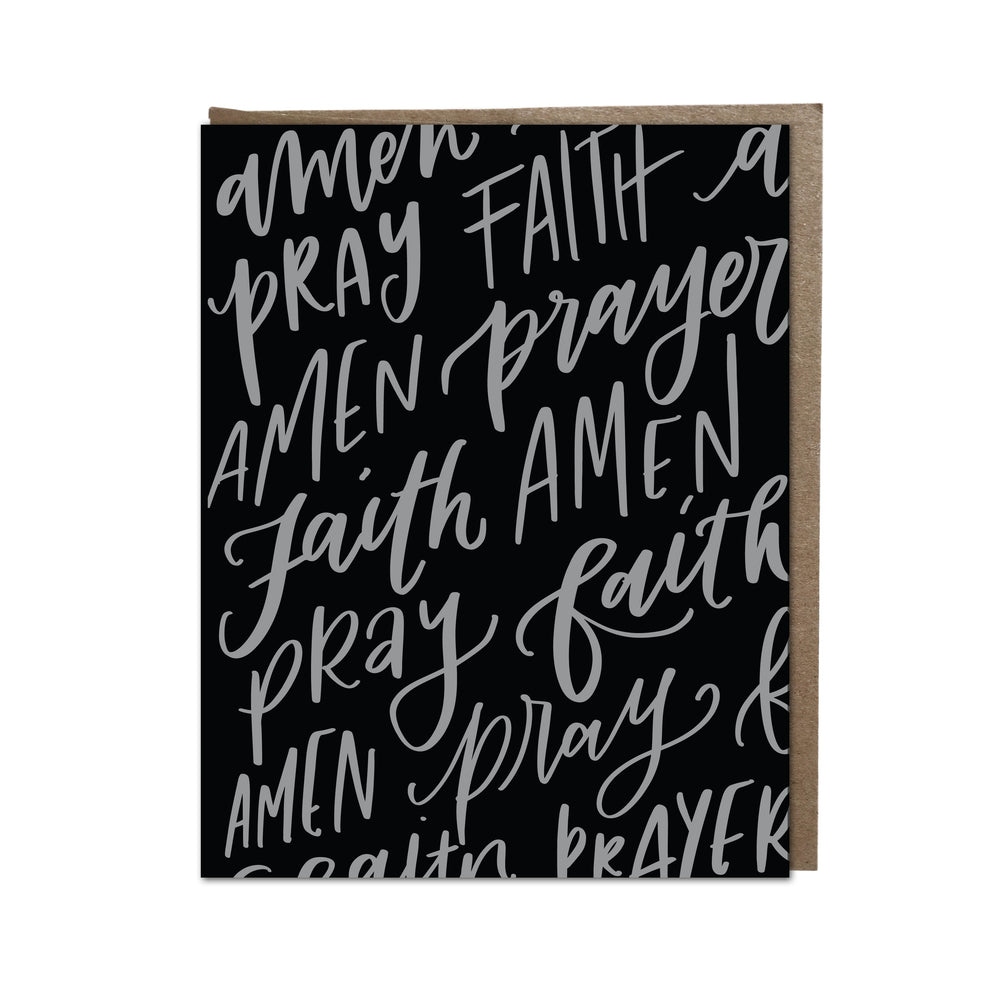 amen FAITH a
PRAY prayer
AMEN AMEN
faith faith
PRay pray f
AMEN PRAYER
faith